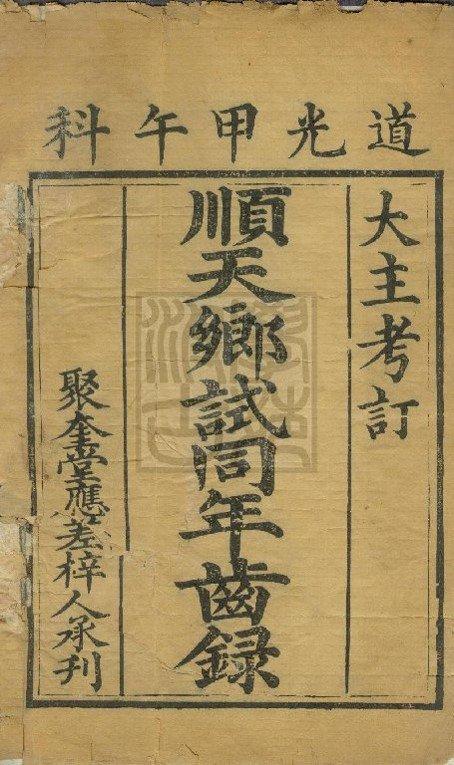 道光甲午科
大主考訂
順天鄉試同年齒録
聚奎堂應差梓人承刊